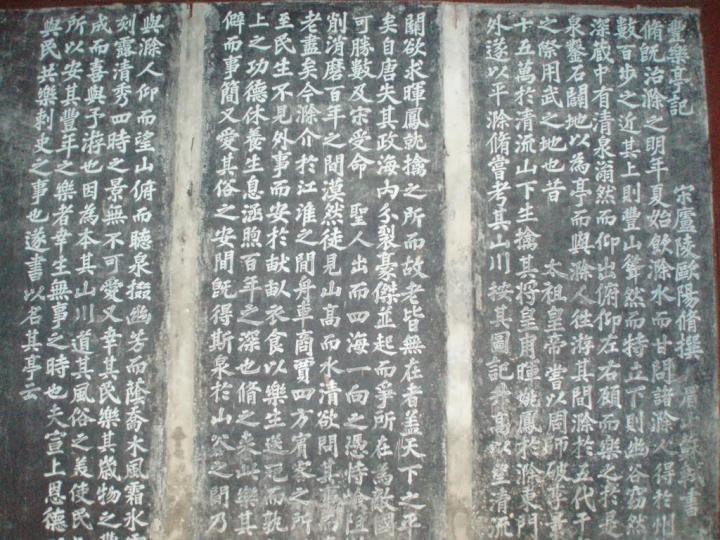 豐樂亭記
宋廬陵歐陽脩撰 眉山蘇軾書
脩既治滁之明年夏始飲滁水而甘問諸滁人得於州
數百步之近其上則豐山聳然而特立下則幽谷窈然
深藏中有清泉滃然而仰出俯仰左右顧而樂之於是
泉鑿石闢地以為亭而與滁人往游其間滁於五代干
之際用武之地也昔 太祖皇帝嘗以周師破李景
十五萬於清流山下生擒其將皇甫暉姚鳳於滁東門
外遂以平滁脩嘗考其山川按其圖記升高以望清流
關欲求暉鳳就擒之所而故老皆無在者蓋天下之平
矣自唐失其政海內分裂豪傑並起而爭所在為敵國
可勝數及宋受命 聖人出而四海一向之憑恃險阻
削消磨百年之間漠然徒見山高而水清欲問其事而
老盡矣今滁介於江淮之間舟車商賈四方賓客之所
至民生不見外事而安於畎畝衣食以樂生送死而孰
上之功德休養生息涵煦百年之深也脩之來此樂其
僻而事簡又愛其俗之安閒既得斯泉於山谷之間乃
與滁人仰而望山俯而聽泉掇幽芳而蔭喬木風霜冰雪
刻露清秀四時之景無不可愛又幸其民樂其歲物之豐
成而喜與予游也因為本其山川道其風俗之美使民
所以安其豐年之樂者幸生無事之時也夫宣上恩德
與民共樂刺史之事也遂書以名其亭云